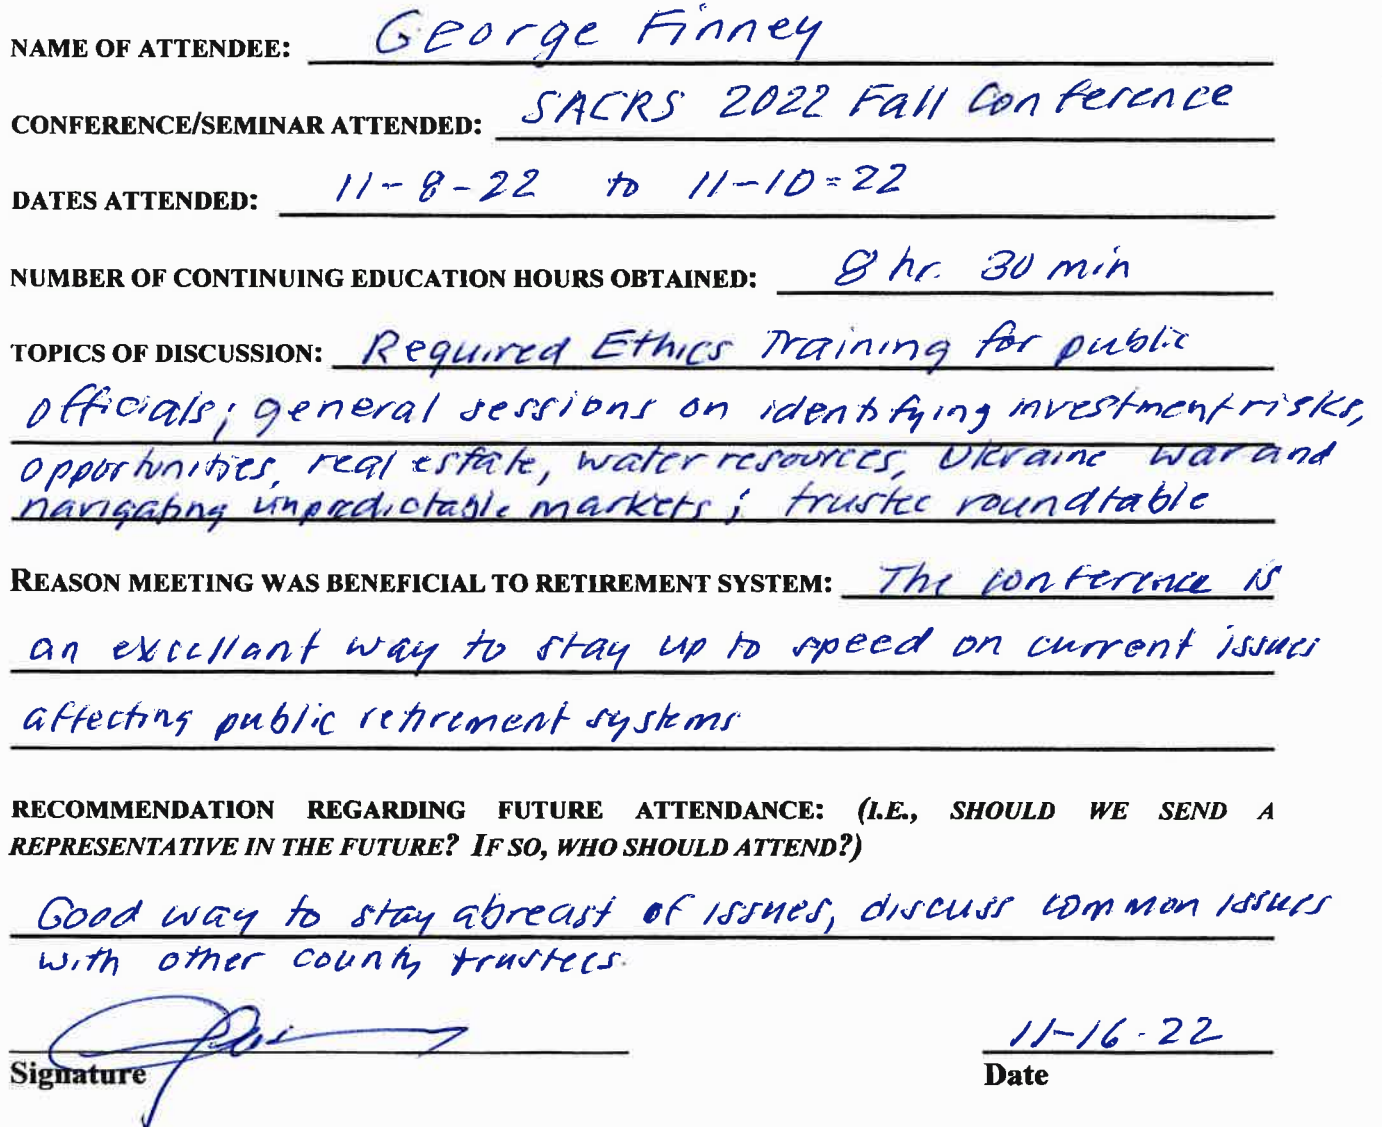 NAME OF ATTENDEE: George Finney
CONFERENCE/SEMINAR ATTENDED: SACRS 2022 Fall Conference
DATES ATTENDED: 11-8-22 to 11-10-22
NUMBER OF CONTINUING EDUCATION HOURS OBTAINED: 8 hr. 30 min
TOPICS OF DISCUSSION: Required Ethics Training for public
officials; general sessions on identifying investment risks,
opportunities, real estate, water resources, Ukraine War and
navigating unpredictable markets; trustee roundtable
REASON MEETING WAS BENEFICIAL TO RETIREMENT SYSTEM: The conference is
an excellant way to stay up to speed on current issues
affecting public retirement systems
RECOMMENDATION REGARDING FUTURE ATTENDANCE: (I.E., SHOULD WE SEND A
REPRESENTATIVE IN THE FUTURE? IF SO, WHO SHOULD ATTEND?)
Good way to stay abreast of issues, discuss common issues
with other county trustees.
11-16-22
Signature Date